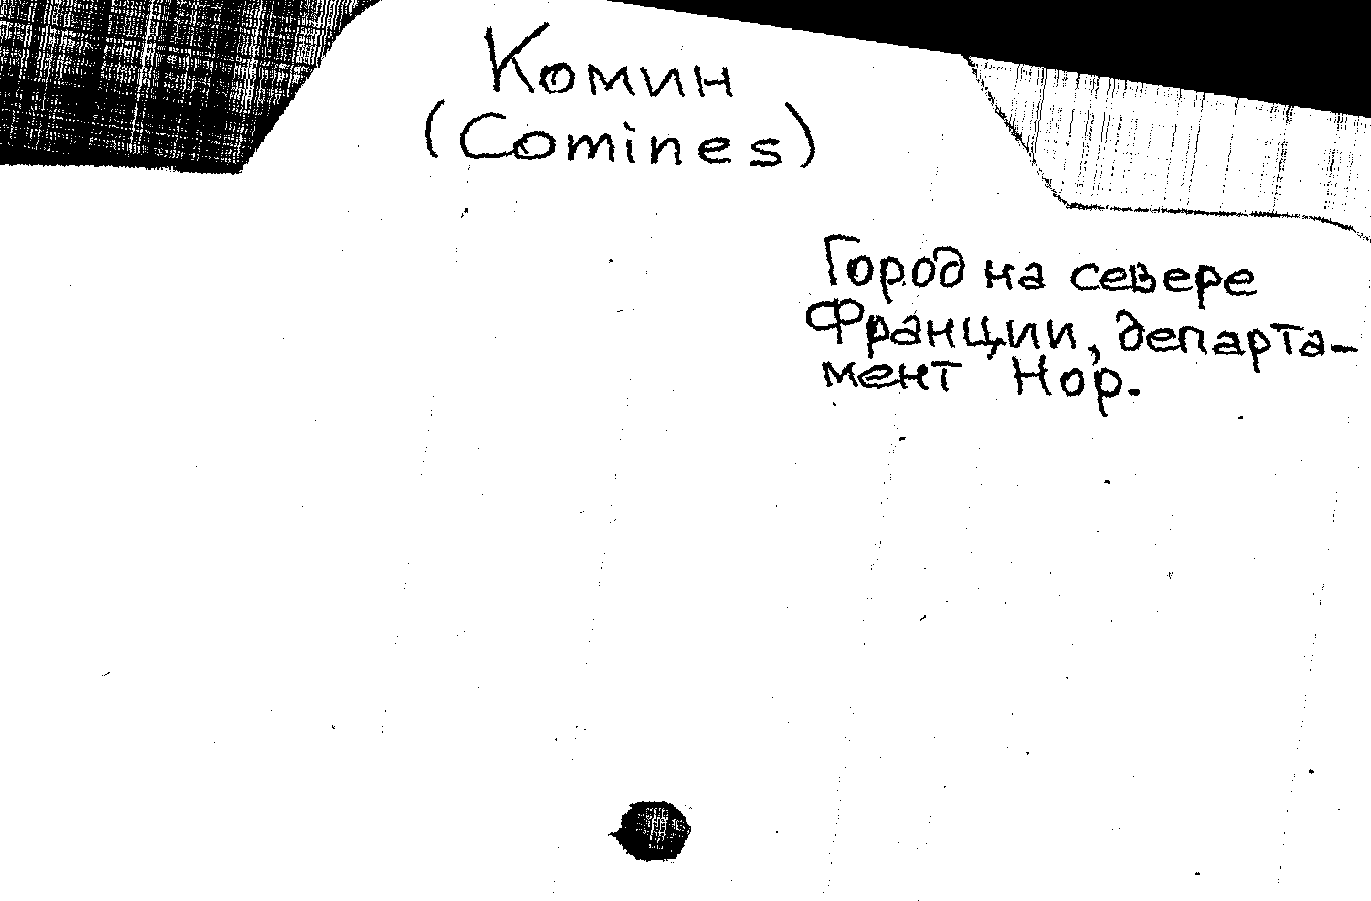 Комин
(Comines)
Город на севере
Франции, департа-
мент Нор.